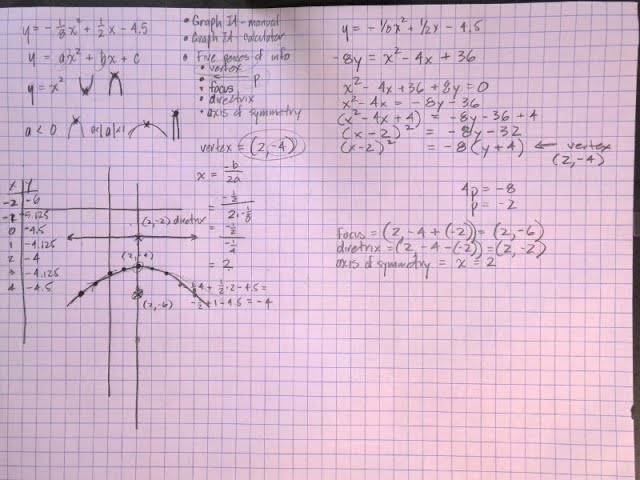 y = -1/8x² + 1/2x - 4.5
y = ax² + bx + c
y = x²
a < 0 0<|a|<1
• Graph It - manual
• Graph It - calculator
• Five pieces of info
• vertex
• p
• focus
• directrix
• axis of symmetry
vertex = (2,-4)
x = -b/2a
= -1/2 / 2·-1/8
= -1/2 / -1/4
= 2
-1/8·4 + 1/2·2 - 4.5 =
-1/2 + 1 - 4.5 = -4
x y
-2 -6
-1 -5.125
0 -4.5
1 -4.125
2 -4
3 -4.125
4 -4.5
(2,-2) diretrix
(2,-4)
(2,-6)
y = -1/8x² + 1/2x - 4.5
-8y = x² - 4x + 36
x² - 4x + 36 + 8y = 0
x² - 4x = -8y - 36
(x² - 4x + 4) = -8y - 36 + 4
(x - 2)² = -8y - 32
(x - 2)² = -8(y + 4) ← vertex
(2,-4)
4p = -8
p = -2
focus = (2, -4 + (-2)) = (2, -6)
diretrix = (2, -4 - (-2)) = (2, -2)
axis of symmetry = x = 2